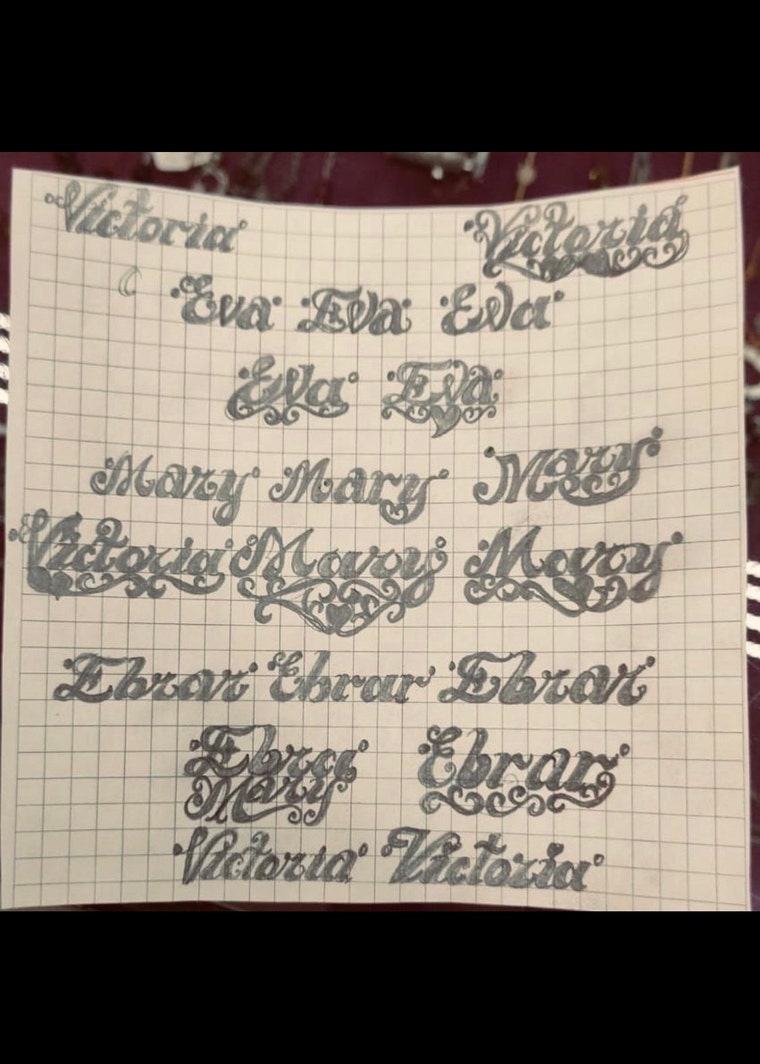 Victoria Victoria
Eva Eva Eva
Eva Eva
Mary Mary Mary
Victoria Mary Mary
Ebrar Ebrar Ebrar
Ebra Ebrar
Mary
Victoria Victoria